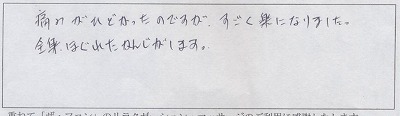 痛みがひどかったのですが、すごく楽になりました。
全身ほぐれたかんじがします。